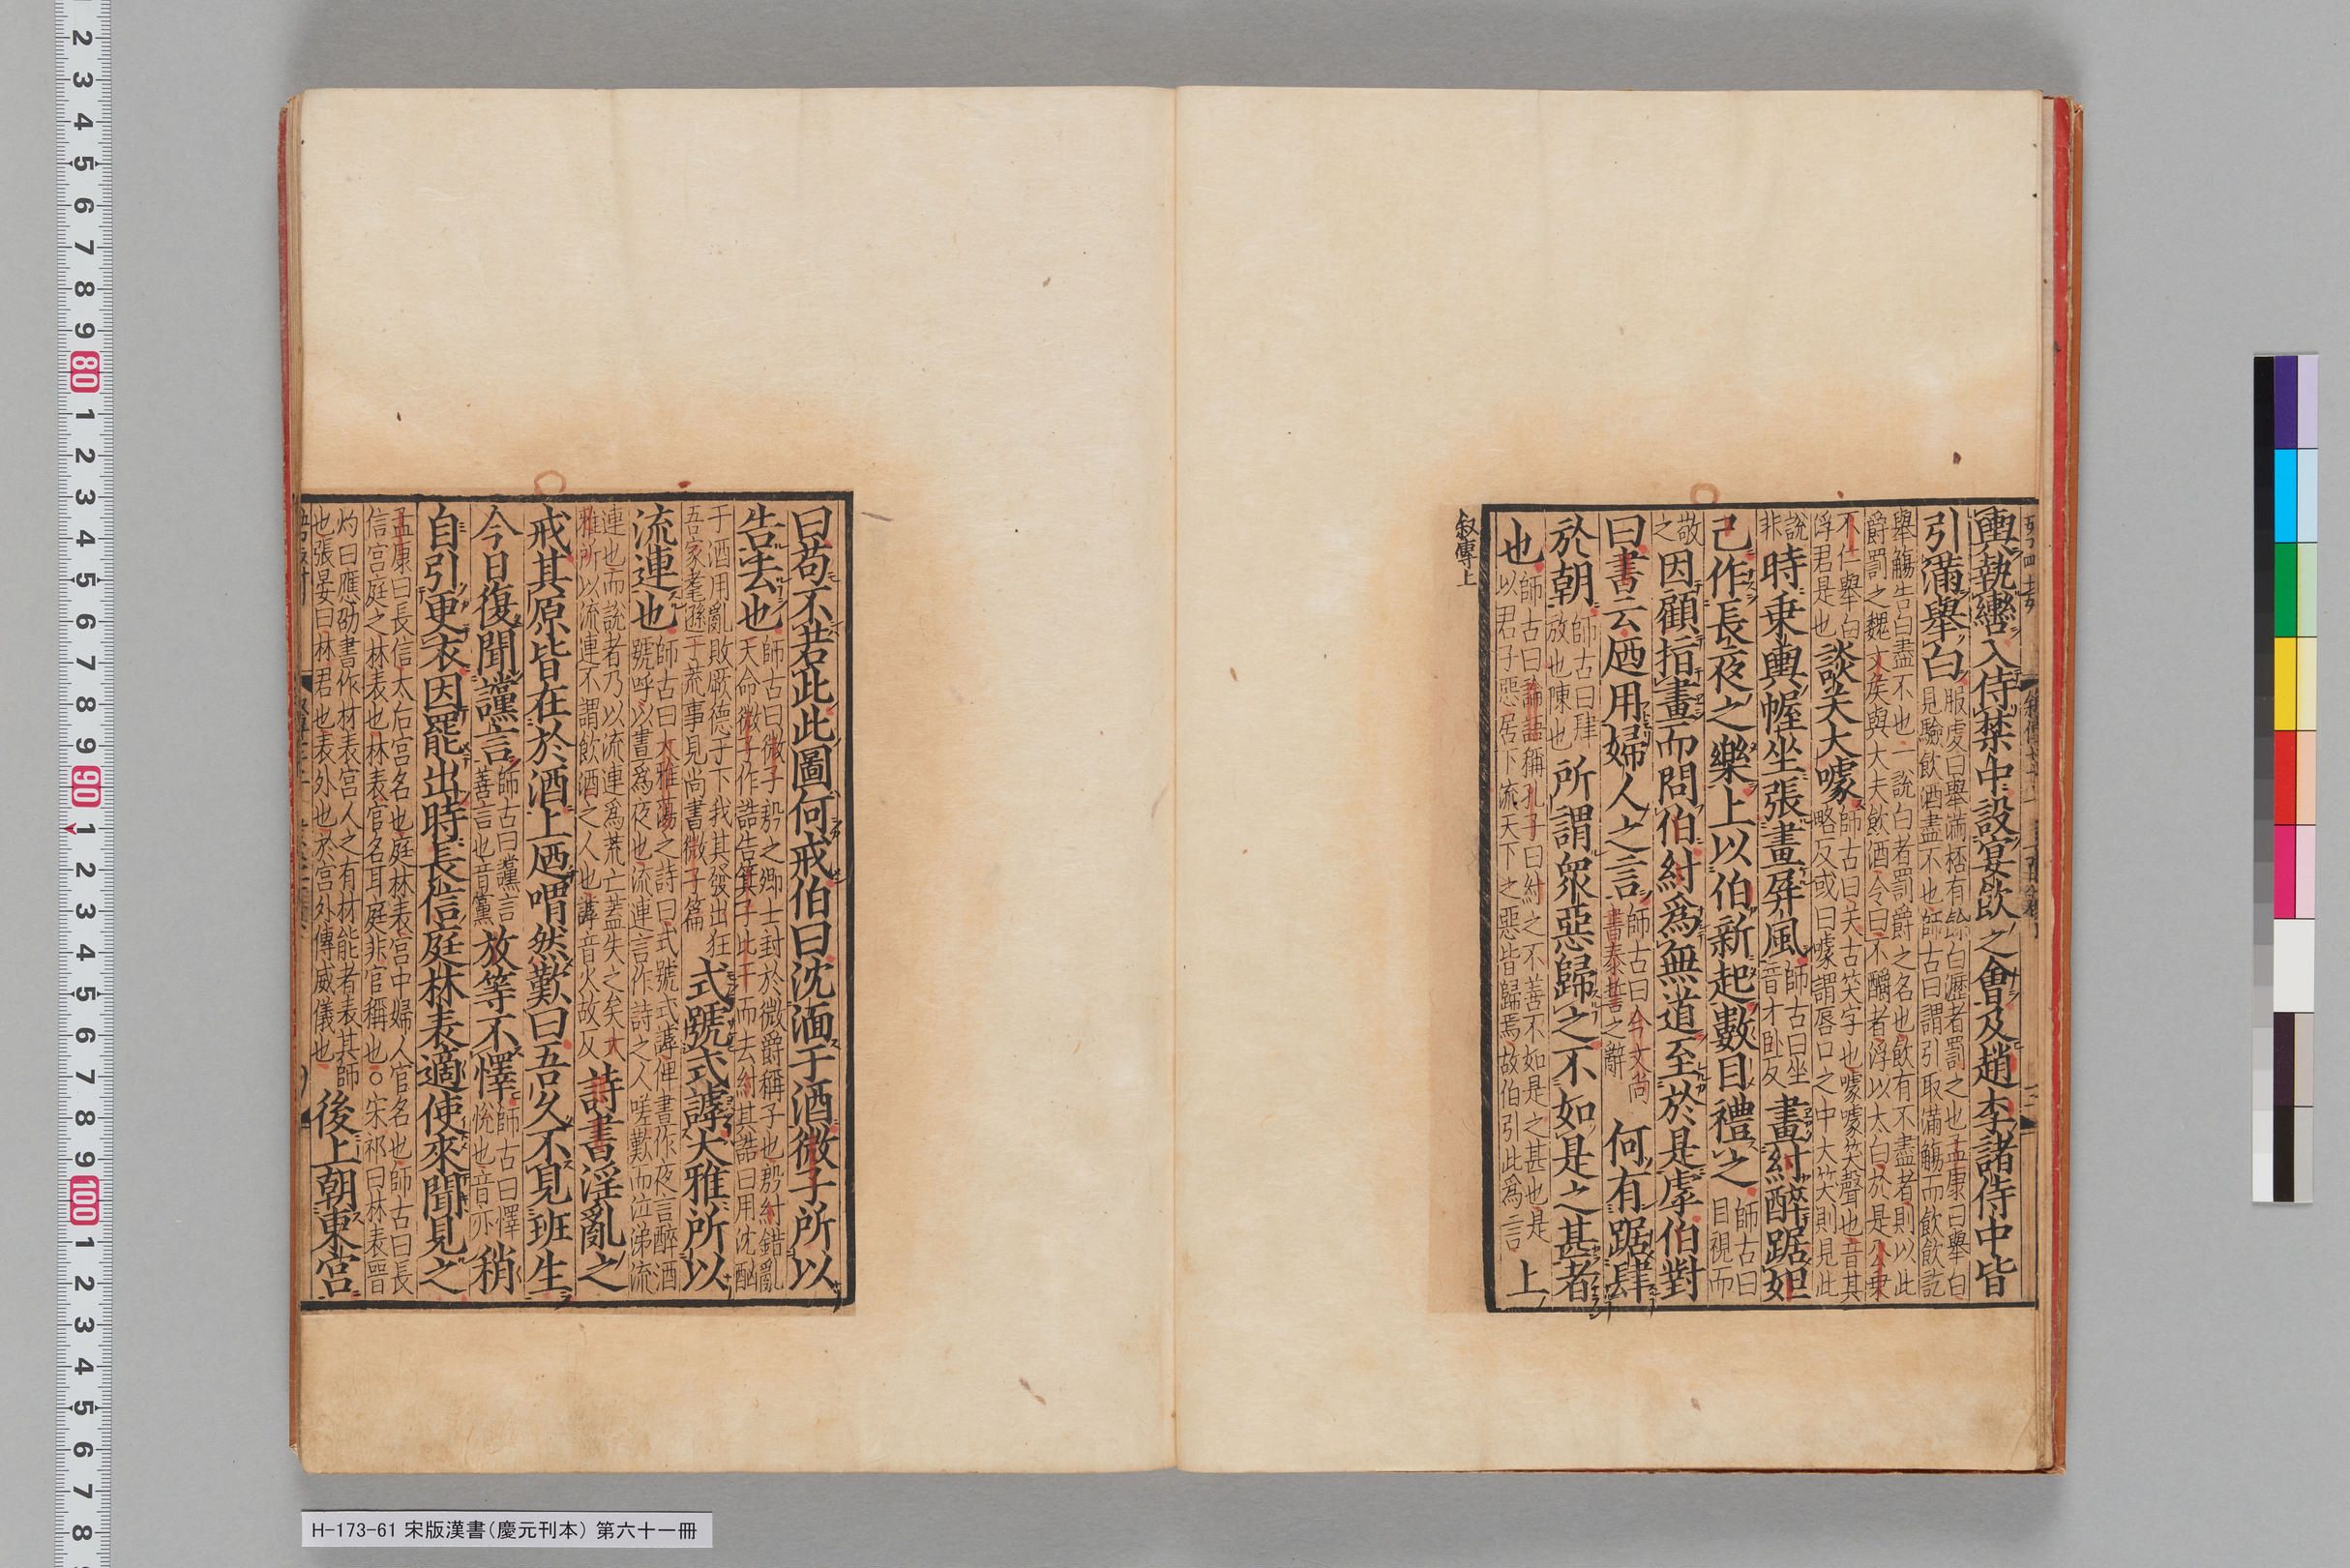 輿執轡入侍禁中設宴飲之會及趙李諸侍中皆
引滿舉白
服虔曰舉滿桮有餘白瀝者罰之也孟康曰舉白
見驗飲酒盡不也師古曰謂引取滿觴而飲飲訖
舉觴告白盡不也一說白者罰爵之名也飲有不盡者則以此
爵罰之魏文侯與大夫飲酒令曰不釂者浮以大白於是公乗
不仁舉白
浮君是也
談关大噱
師古曰关古笑字也噱噱笑聲也音其
略反或曰噱謂脣口之中大笑則見此
說
非
時乗輿幄坐張畫屏風
師古曰坐
音才卧反
畫紂醉踞妲
己作長夜之樂上以伯新起數目禮之
師古曰
目視而
敬
之
因顧指畫而問伯紂爲無道至於是虖伯對
曰書云廼用婦人之言
師古曰今文尚
書泰誓之辭
何有踞肆
於朝
師古曰肆
放也陳也
所謂衆惡歸之不如是之甚者
也
師古曰論語稱孔子曰紂之不善不如是之甚也是
以君子惡居下流天下之惡皆歸焉故伯引此爲言
上
叙傳上
曰苟不若此此圖何戒伯曰沈湎于酒微子所以
告去也
師古曰微子殷之卿士封於微爵稱子也殷紂錯亂
天命微子作誥告箕子比干而去紂其誥曰用沈酗
于酒用亂敗厥德于下我其發出狂
吾家耄遜于荒事見尚書微子篇
式號式謼大雅所以
流連也
師古曰大雅蕩之詩曰式號式謼俾晝作夜言醉酒
號呼以晝爲夜也流連言作詩之人嗟歎而泣涕流
連也而說者乃以流連爲荒亡蓋失之矣大
雅所以流連不謂飲酒之人也謼音火故反
詩書淫亂之
戒其原皆在於酒上廼喟然歎曰吾久不見班生
今日復聞讜言
師古曰讜言
善言也音黨
放等不懌
師古曰懌
悅也音亦
稍
自引更衣因罷出時長信庭林表適使來聞見之
孟康曰長信太后宫名也庭林表宫中婦人官名也師古曰長
信宫庭之林表也林表官名耳庭非官稱也○宋祁曰林表晉
灼曰應劭書作材表宫人之有材能者表其師
也張晏曰林君也表外也於宫外傳威儀也
後上朝東宫
H-173-61 宋版漢書(慶元刊本) 第六十一冊